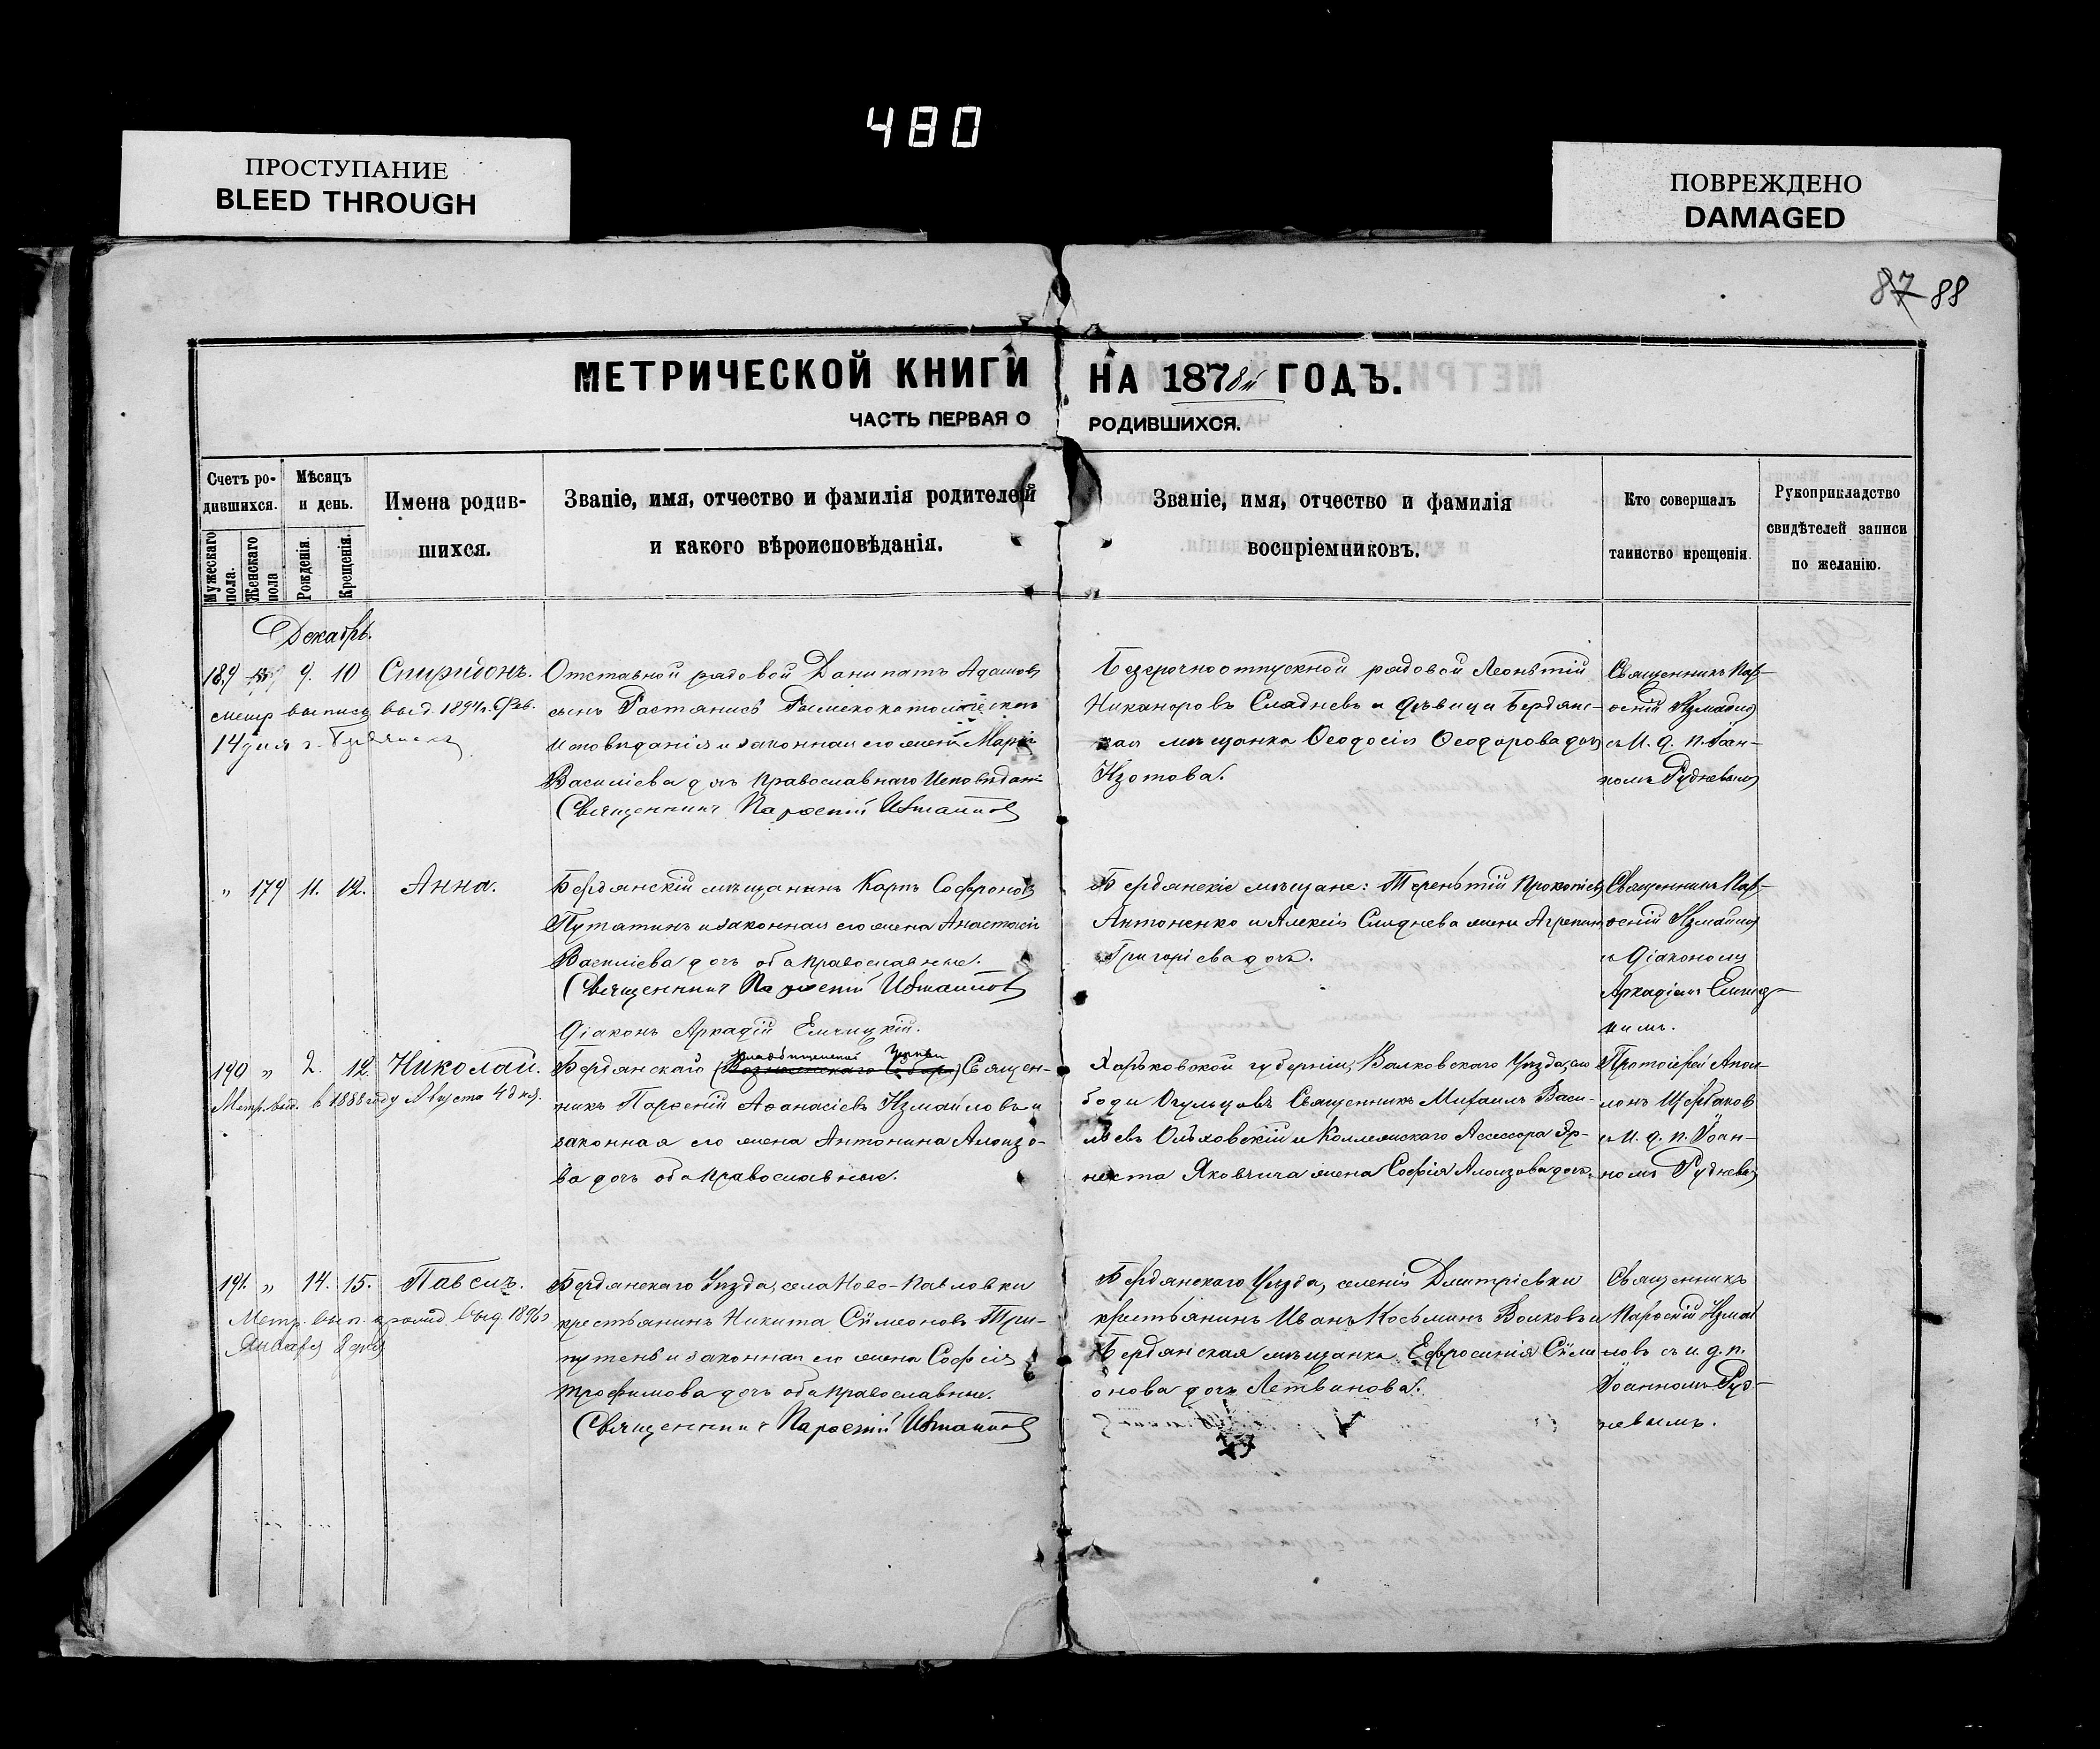 480
ПРОСТУПАНИЕ
BLEED THROUGH
ПОВРЕЖДЕНО
DAMAGED
87 88
МЕТРИЧЕСКОЙ КНИГИ НА 1878й ГОДЪ.
ЧАСТЬ ПЕРВАЯ О РОДИВШИХСЯ.
Счетъ ро-
дившихся.
Мужескаго пола.
Женскаго пола
Мѣсяцъ
и день.
Рожденія.
Крещенія.
Имена родив-
шихся.
Званіе, имя, отчество и фамилія родителей
и какого вѣроисповѣданія.
Званіе, имя, отчество и фамилія
воспріемниковъ.
Кто совершалъ
таинство крещенія.
Рукоприкладство
свидѣтелей записи
по желанію.
Декабрь.
189 9. 10 Спиридонъ.
метр выпись выд. 1894 г. Фев.
14 дня г. Бердянскъ
Отставной рядовой Адамовъ
сынъ Римскокатолическаго
исповѣданія и законная его жена Марія
Василіева дочь православнаго исповѣдані
Священникъ Парѳеній Измаиловъ
Безсрочноотпускной рядовой Леонтій
Никаноровъ Сладневъ и дѣвица Бердянс-
кая мѣщанка Ѳеодосія Ѳеодорова дочь
Изотова.
Священникъ Пар-
ѳеній Измаиловъ
съ И. д. п. Іоан-
номъ Рудневымъ
„ 179 11. 12. Анна.
Бердянскій мѣщанинъ Карпъ Софроновъ
Путятинъ и законная его жена Анастасія
Василіева дочь оба православные.
Священникъ Парѳеній Измаиловъ
Діаконъ Аркадій Емчицкій.
Бердянскіе мѣщане: Терентій Прокопіевъ
Антоненко и Алексія Сладнева жена Агрепина
Григоріева дочь.
Священникъ Пар-
ѳеній Измаиловъ
съ Діакономъ
Аркадіемъ Емчиц-
кимъ.
190 „ 2. 12. Николай.
Метр. выд. в 1888 году Августа 4 дня.
Бердянскаго (Вознесенскаго Собора) Священ-
кладбищенской Церкви
никъ Парѳеній Аѳанасіевъ Измаиловъ и
законная его жена Антонина Алоизо-
ва дочь оба православные.
Харьковской губерніи, Валковскаго Уѣзда, сло
боды Огульцовъ Священникъ Михаилъ Васи-
льевъ Ольховскій и Коллежскаго Ассесора Эр-
неста Яковчича жена Софія Алоизова дочь.
Протоіерей Апол-
лонъ Щербаковъ
съ И. д. п. Іоан-
номъ Рудневымъ
191. „ 14. 15. Павелъ.
Метр. вып. выд. 1896
Января 8 дня
Бердянскаго Уѣзда, села Ново-Павловки
крестьянинъ Никита Сѵмеоновъ Три-
путень и законная его жена Софія
Трофимова дочь оба православные.
Священникъ Парѳеній Измаиловъ
Бердянскаго Уѣзда, селенія Дмитріевки
крестьянинъ Иванъ Косьминъ Волковъ и
Бердянская мѣщанка Ефросинія Сѵме
онова дочь Летвинова.
Священникъ
Парѳеній Измаи
ловъ съ и. д. п.
Іоанномъ Руд-
невымъ.